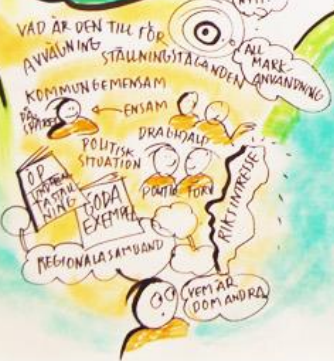 VAD ÄR DEN TILL FÖR
AVVÄGNING
STÄLLNINGSTAGANDEN
ALL
MARK-
ANVÄNDNING
KOMMUNGEMENSAM
PÅ
SPÅRET
ENSAM
DRAGHJÄLP
POLITISK
SITUATION
POLITIK
FÖRV
RIKTINTRESSE
GODA
EXEMPEL
REGIONALA SAMBAND
VEM ÄR
DOM ANDRA